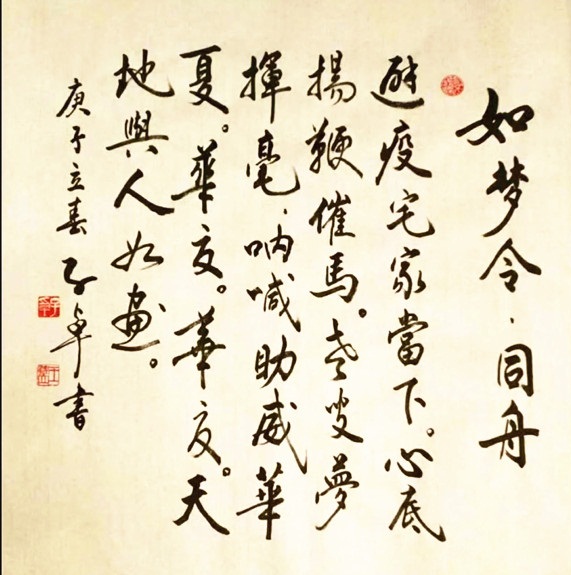 如梦令·同舟
避疫宅家當下。心底
揚鞭催馬。老叟夢
揮毫·呐喊助威華
夏。華夏。華夏。天
地與人如畫。
庚子立春 子卓書